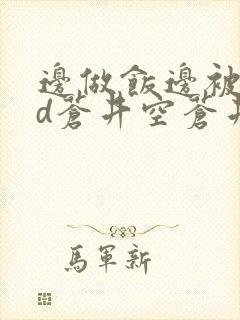 邊做飯邊被
d蒼井空蒼井
馬軍新